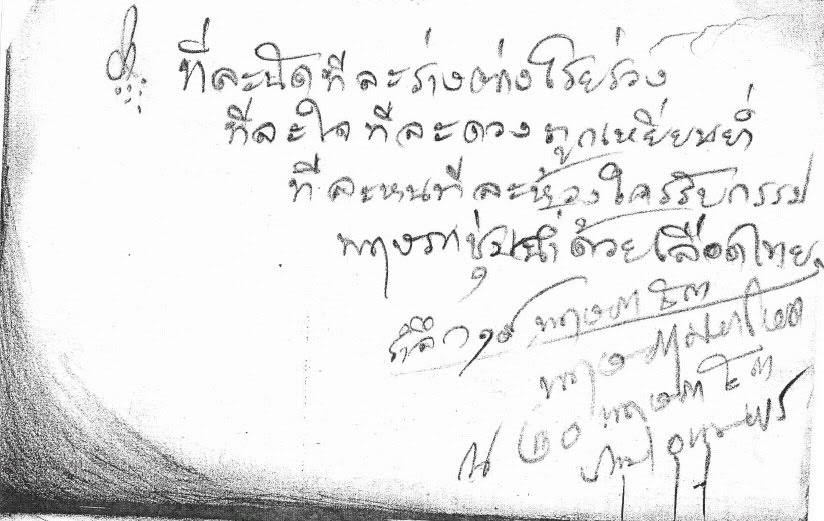 ทีละนิดทีละร่างต่างโรยร่วง
ทีละใจทีละดวงถูกเหยียบย่ำ
ทีละหนทีละห้วงใครรับกรรม
พฤษภาชุ่มน้ำด้วยเลือดไทย
รำลึก ๑๙ พฤษภา ๕๓
พฤษภา
ณ ๒๐ พฤษภา ๕๓